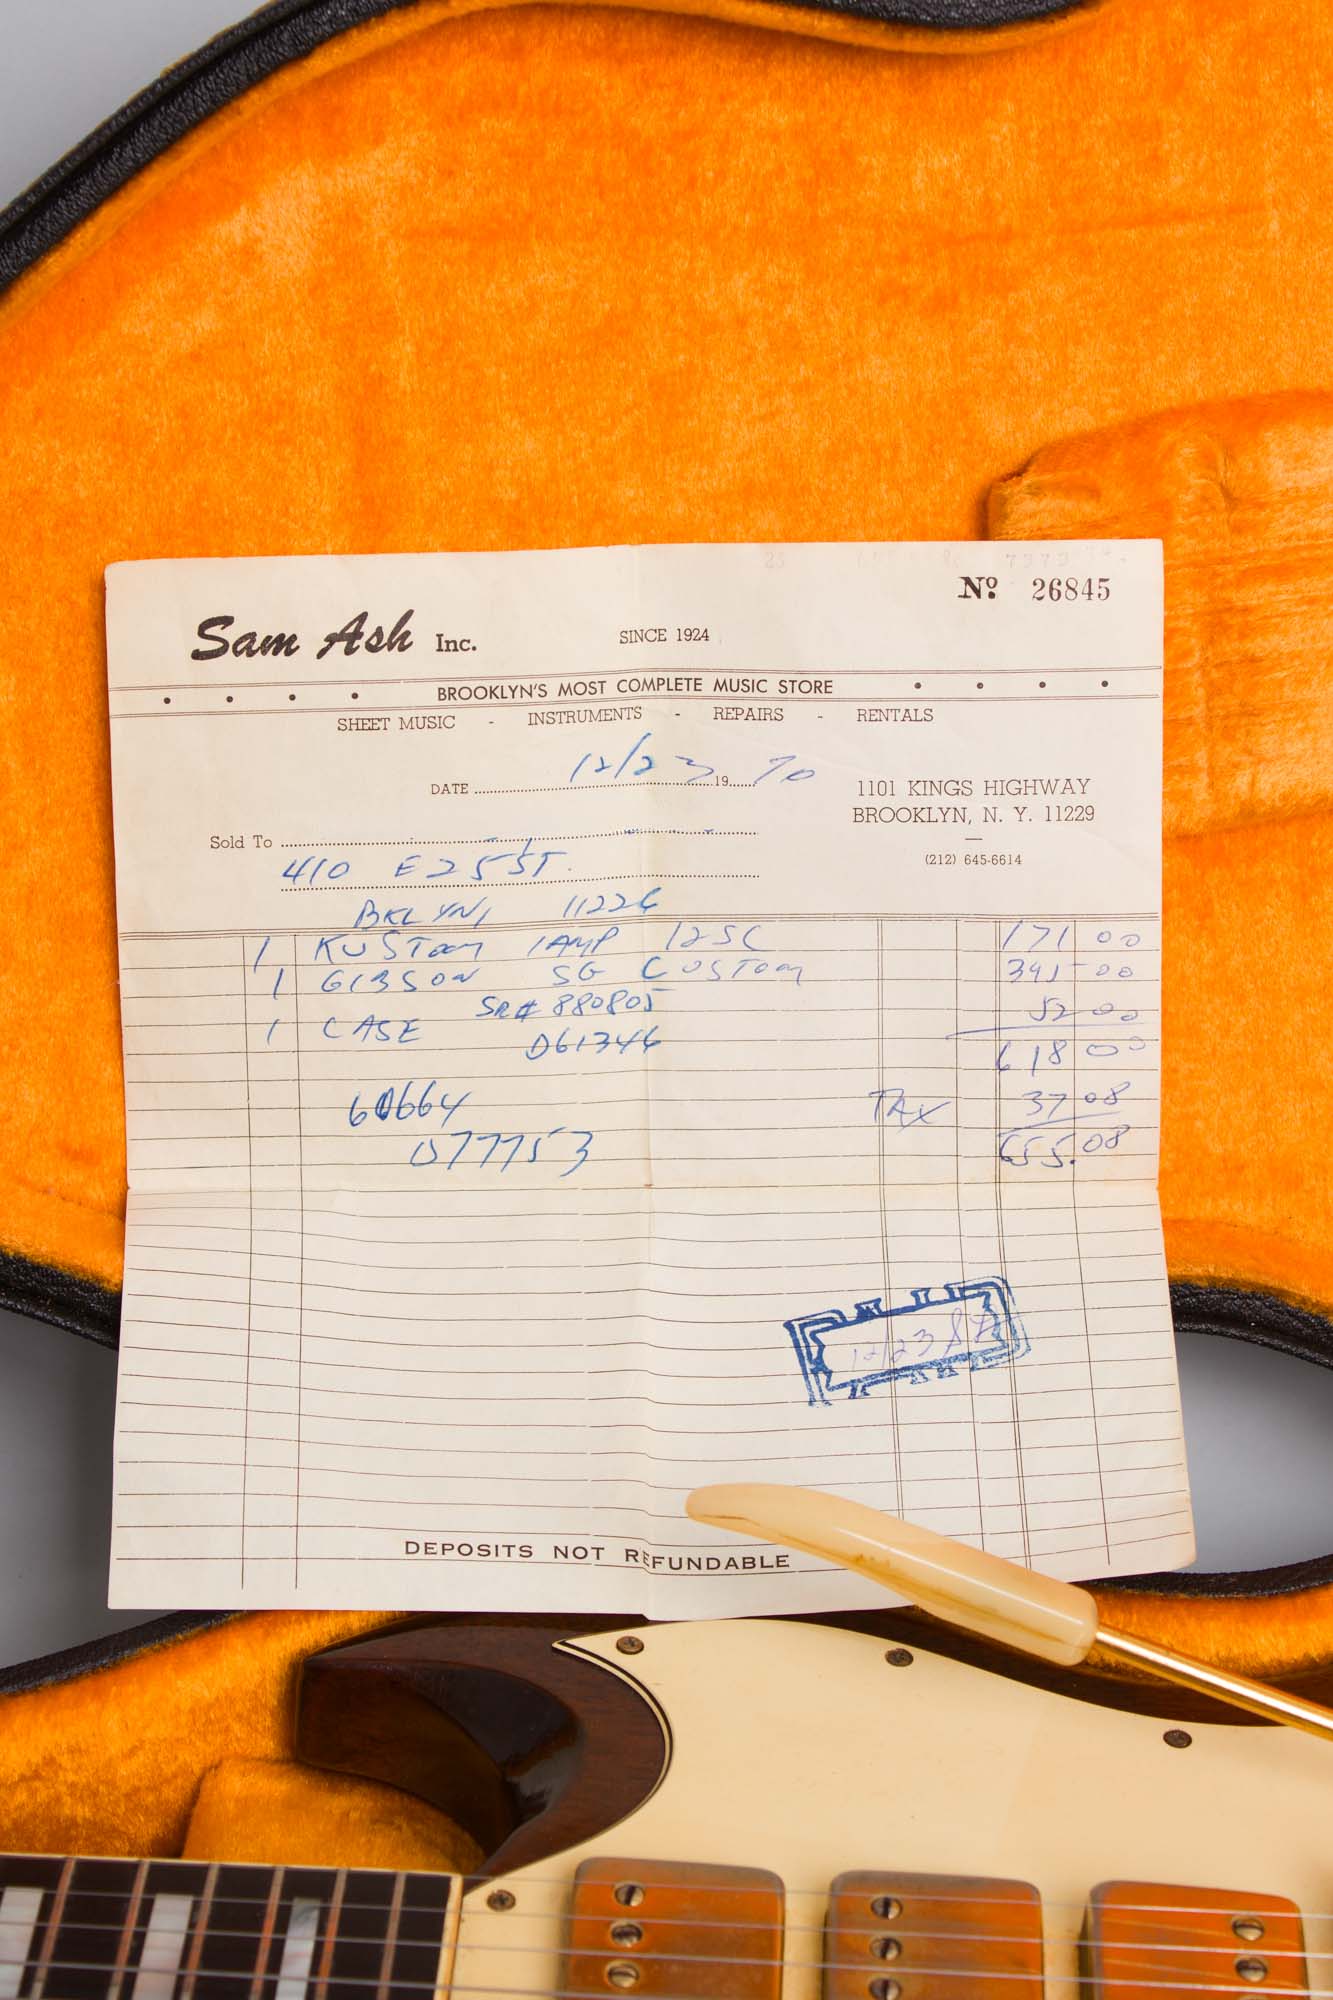 Nº 26845
Sam Ash Inc. SINCE 1924
BROOKLYN'S MOST COMPLETE MUSIC STORE
SHEET MUSIC - INSTRUMENTS - REPAIRS - RENTALS
DATE 12/23 19 70
1101 KINGS HIGHWAY
BROOKLYN, N. Y. 11229
(212) 645-6614
Sold To
410 E 25 ST.
BKLYN, 11226
1 KUSTOM 1AMP 12SC 171 00
1 GIBSON SG CUSTOM 395 00
SR# 880805
1 CASE 52 00
D61346 618 00
60664 TAX 37 08
077753 655.08
12/23
DEPOSITS NOT REFUNDABLE